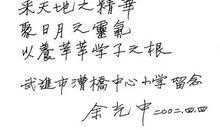 采天地之精華
聚日月之靈氣
以養莘莘学子之根
武進市漕橋中心小学 留念
余光中 二〇〇二.四.四